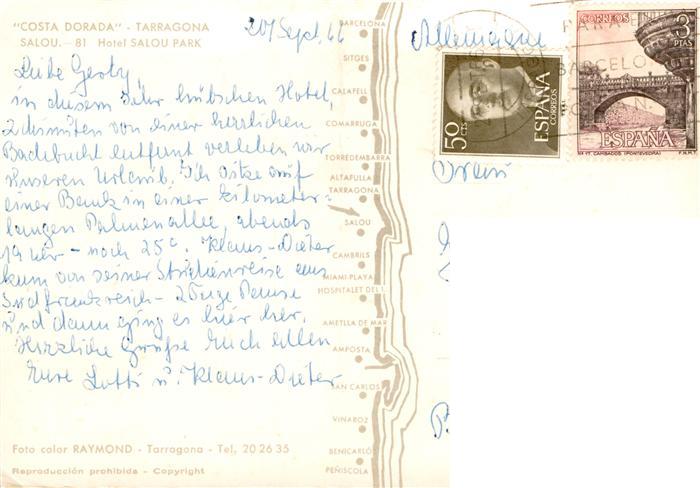 "COSTA DORADA" - TARRAGONA
SALOU. - 81 Hotel SALOU PARK
20. Sept. 66
Liebe Gerty,
in diesem sehr hübschen Hotel,
2 Minuten von einer herrlichen
Badebucht entfernt verleben wir
unseren Urlaub. Ich sitze auf
einer Bank in einer kilometer-
langen Palmenallee, abends
19 Uhr - noch 25°. Klaus-Dieter
kam von seiner Studienreise aus
Südfrankreich - 2 Tage Pause
und dann ging es hier her.
Herzliche Grüße Euch allen
Eure Lotti u. Klaus-Dieter
Foto color RAYMOND - Tarragona - Tel. 20 26 35
Reproducción prohibida - Copyright
BARCELONA
SITGES
CALAFELL
COMARRUGA
TORREDEMBARRA
ALTAFULLA
TARRAGONA
SALOU
CAMBRILS
MIAMI-PLAYA
HOSPITALET DEL I.
AMETLLA DE MAR
AMPOSTA
SAN CARLOS
VINAROZ
BENICARLÓ
PEÑISCOLA
Allemagne
50 CTS
ESPAÑA
CORREOS
CORREOS
3
PTAS
ESPAÑA
CAMBADOS (PONTEVEDRA)
F.N.M.T.
PARA
BARCELONA